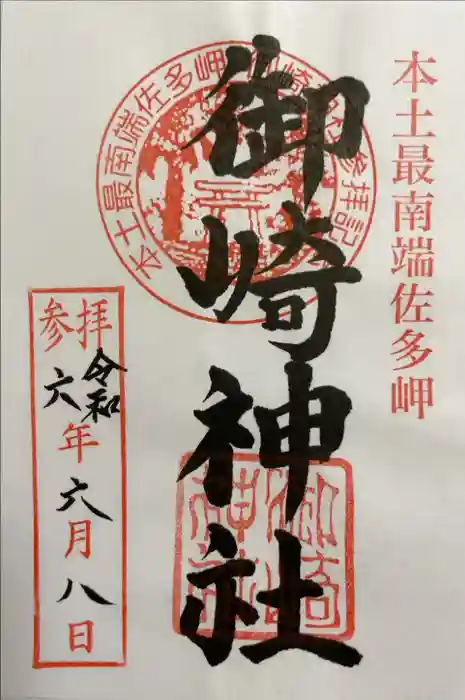 本土最南端佐多岬
御崎神社
本土最南端佐多岬
参拝記
御崎神社
参拝
令和
六年六月八日